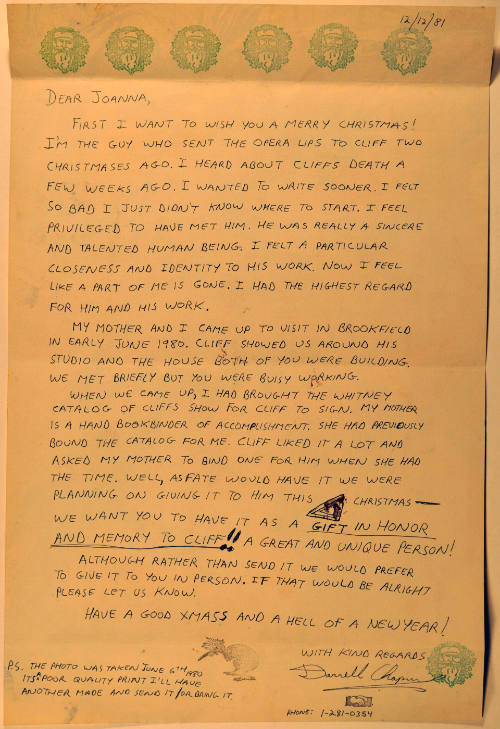 12/12/81
DEAR JOANNA,
FIRST I WANT TO WISH YOU A MERRY CHRISTMAS!
I'M THE GUY WHO SENT THE OPERA LIPS TO CLIFF TWO
CHRISTMASES AGO. I HEARD ABOUT CLIFFS DEATH A
FEW WEEKS AGO. I WANTED TO WRITE SOONER. I FELT
SO BAD I JUST DIDN'T KNOW WHERE TO START. I FEEL
PRIVILEGED TO HAVE MET HIM. HE WAS REALLY A SINCERE
AND TALENTED HUMAN BEING. I FELT A PARTICULAR
CLOSENESS AND IDENTITY TO HIS WORK. NOW I FEEL
LIKE A PART OF ME IS GONE. I HAD THE HIGHEST REGARD
FOR HIM AND HIS WORK.
MY MOTHER AND I CAME UP TO VISIT IN BROOKFIELD
IN EARLY JUNE 1980. CLIFF SHOWED US AROUND HIS
STUDIO AND THE HOUSE BOTH OF YOU WERE BUILDING.
WE MET BRIEFLY BUT YOU WERE BUISY WORKING.
WHEN WE CAME UP, I HAD BROUGHT THE WHITNEY
CATALOG OF CLIFFS SHOW FOR CLIFF TO SIGN. MY MOTHER
IS A HAND BOOKBINDER OF ACCOMPLISHMENT. SHE HAD PREVIOUSLY
BOUND THE CATALOG FOR ME. CLIFF LIKED IT A LOT AND
ASKED MY MOTHER TO BIND ONE FOR HIM WHEN SHE HAD
THE TIME. WELL, AS FATE WOULD HAVE IT WE WERE
PLANNING ON GIVING IT TO HIM THIS CHRISTMAS —
WE WANT YOU TO HAVE IT AS A GIFT IN HONOR
AND MEMORY TO CLIFF!! A GREAT AND UNIQUE PERSON!
ALTHOUGH RATHER THAN SEND IT WE WOULD PREFER
TO GIVE IT TO YOU IN PERSON. IF THAT WOULD BE ALRIGHT
PLEASE LET US KNOW.
HAVE A GOOD XMASS AND A HELL OF A NEW YEAR!
WITH KIND REGARDS
Darrell Chapin
PHONE: 1-281-0384
P.S. THE PHOTO WAS TAKEN JUNE 6TH 1980
ITS A POOR QUALITY PRINT I'LL HAVE
ANOTHER MADE AND SEND IT / OR BRING IT.